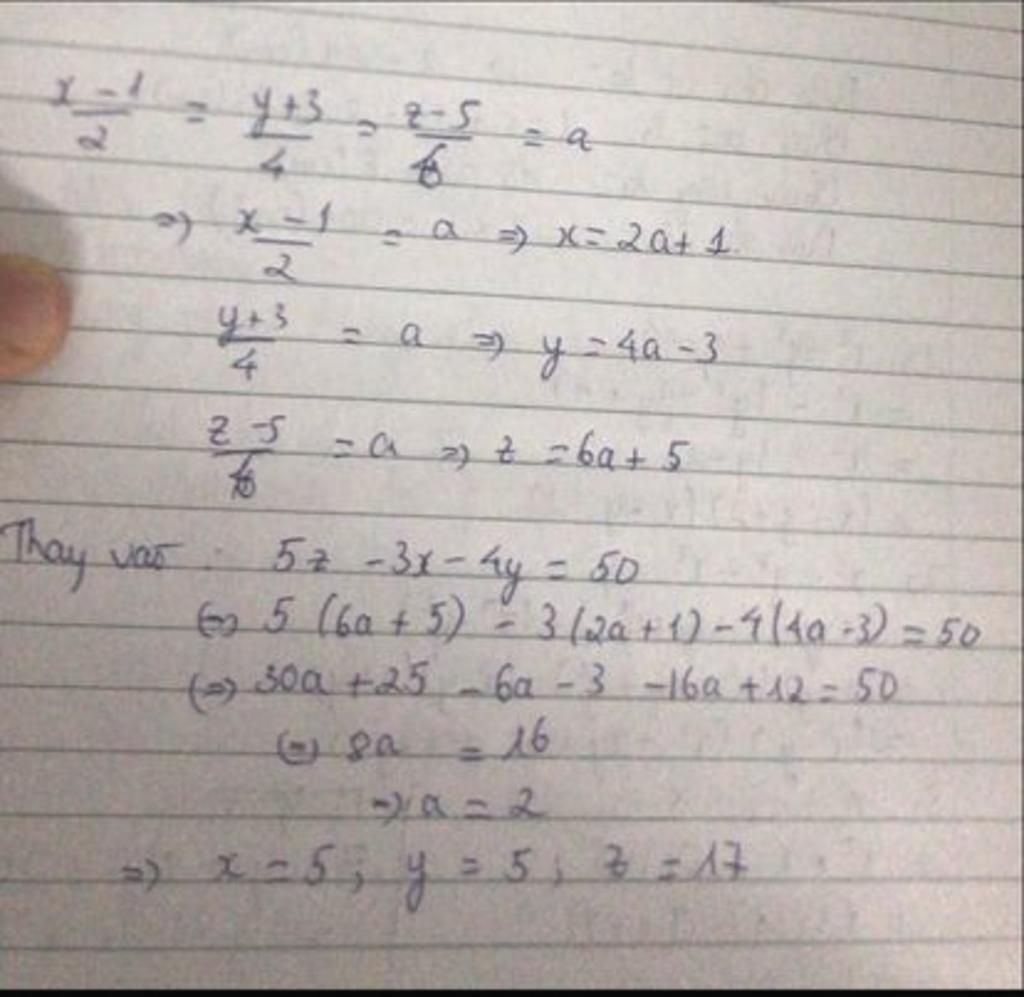 x - 1 / 2 = y + 3 / 4 = z - 5 / 6 = a
=> x - 1 / 2 = a => x = 2a + 1
y + 3 / 4 = a => y = 4a - 3
z - 5 / 6 = a => z = 6a + 5
Thay vào : 5z - 3x - 4y = 50
<=> 5 (6a + 5) - 3 (2a + 1) - 4 (4a - 3) = 50
<=> 30a + 25 - 6a - 3 - 16a + 12 = 50
<=> 8a = 16
=> a = 2
=> x = 5 ; y = 5 ; z = 17